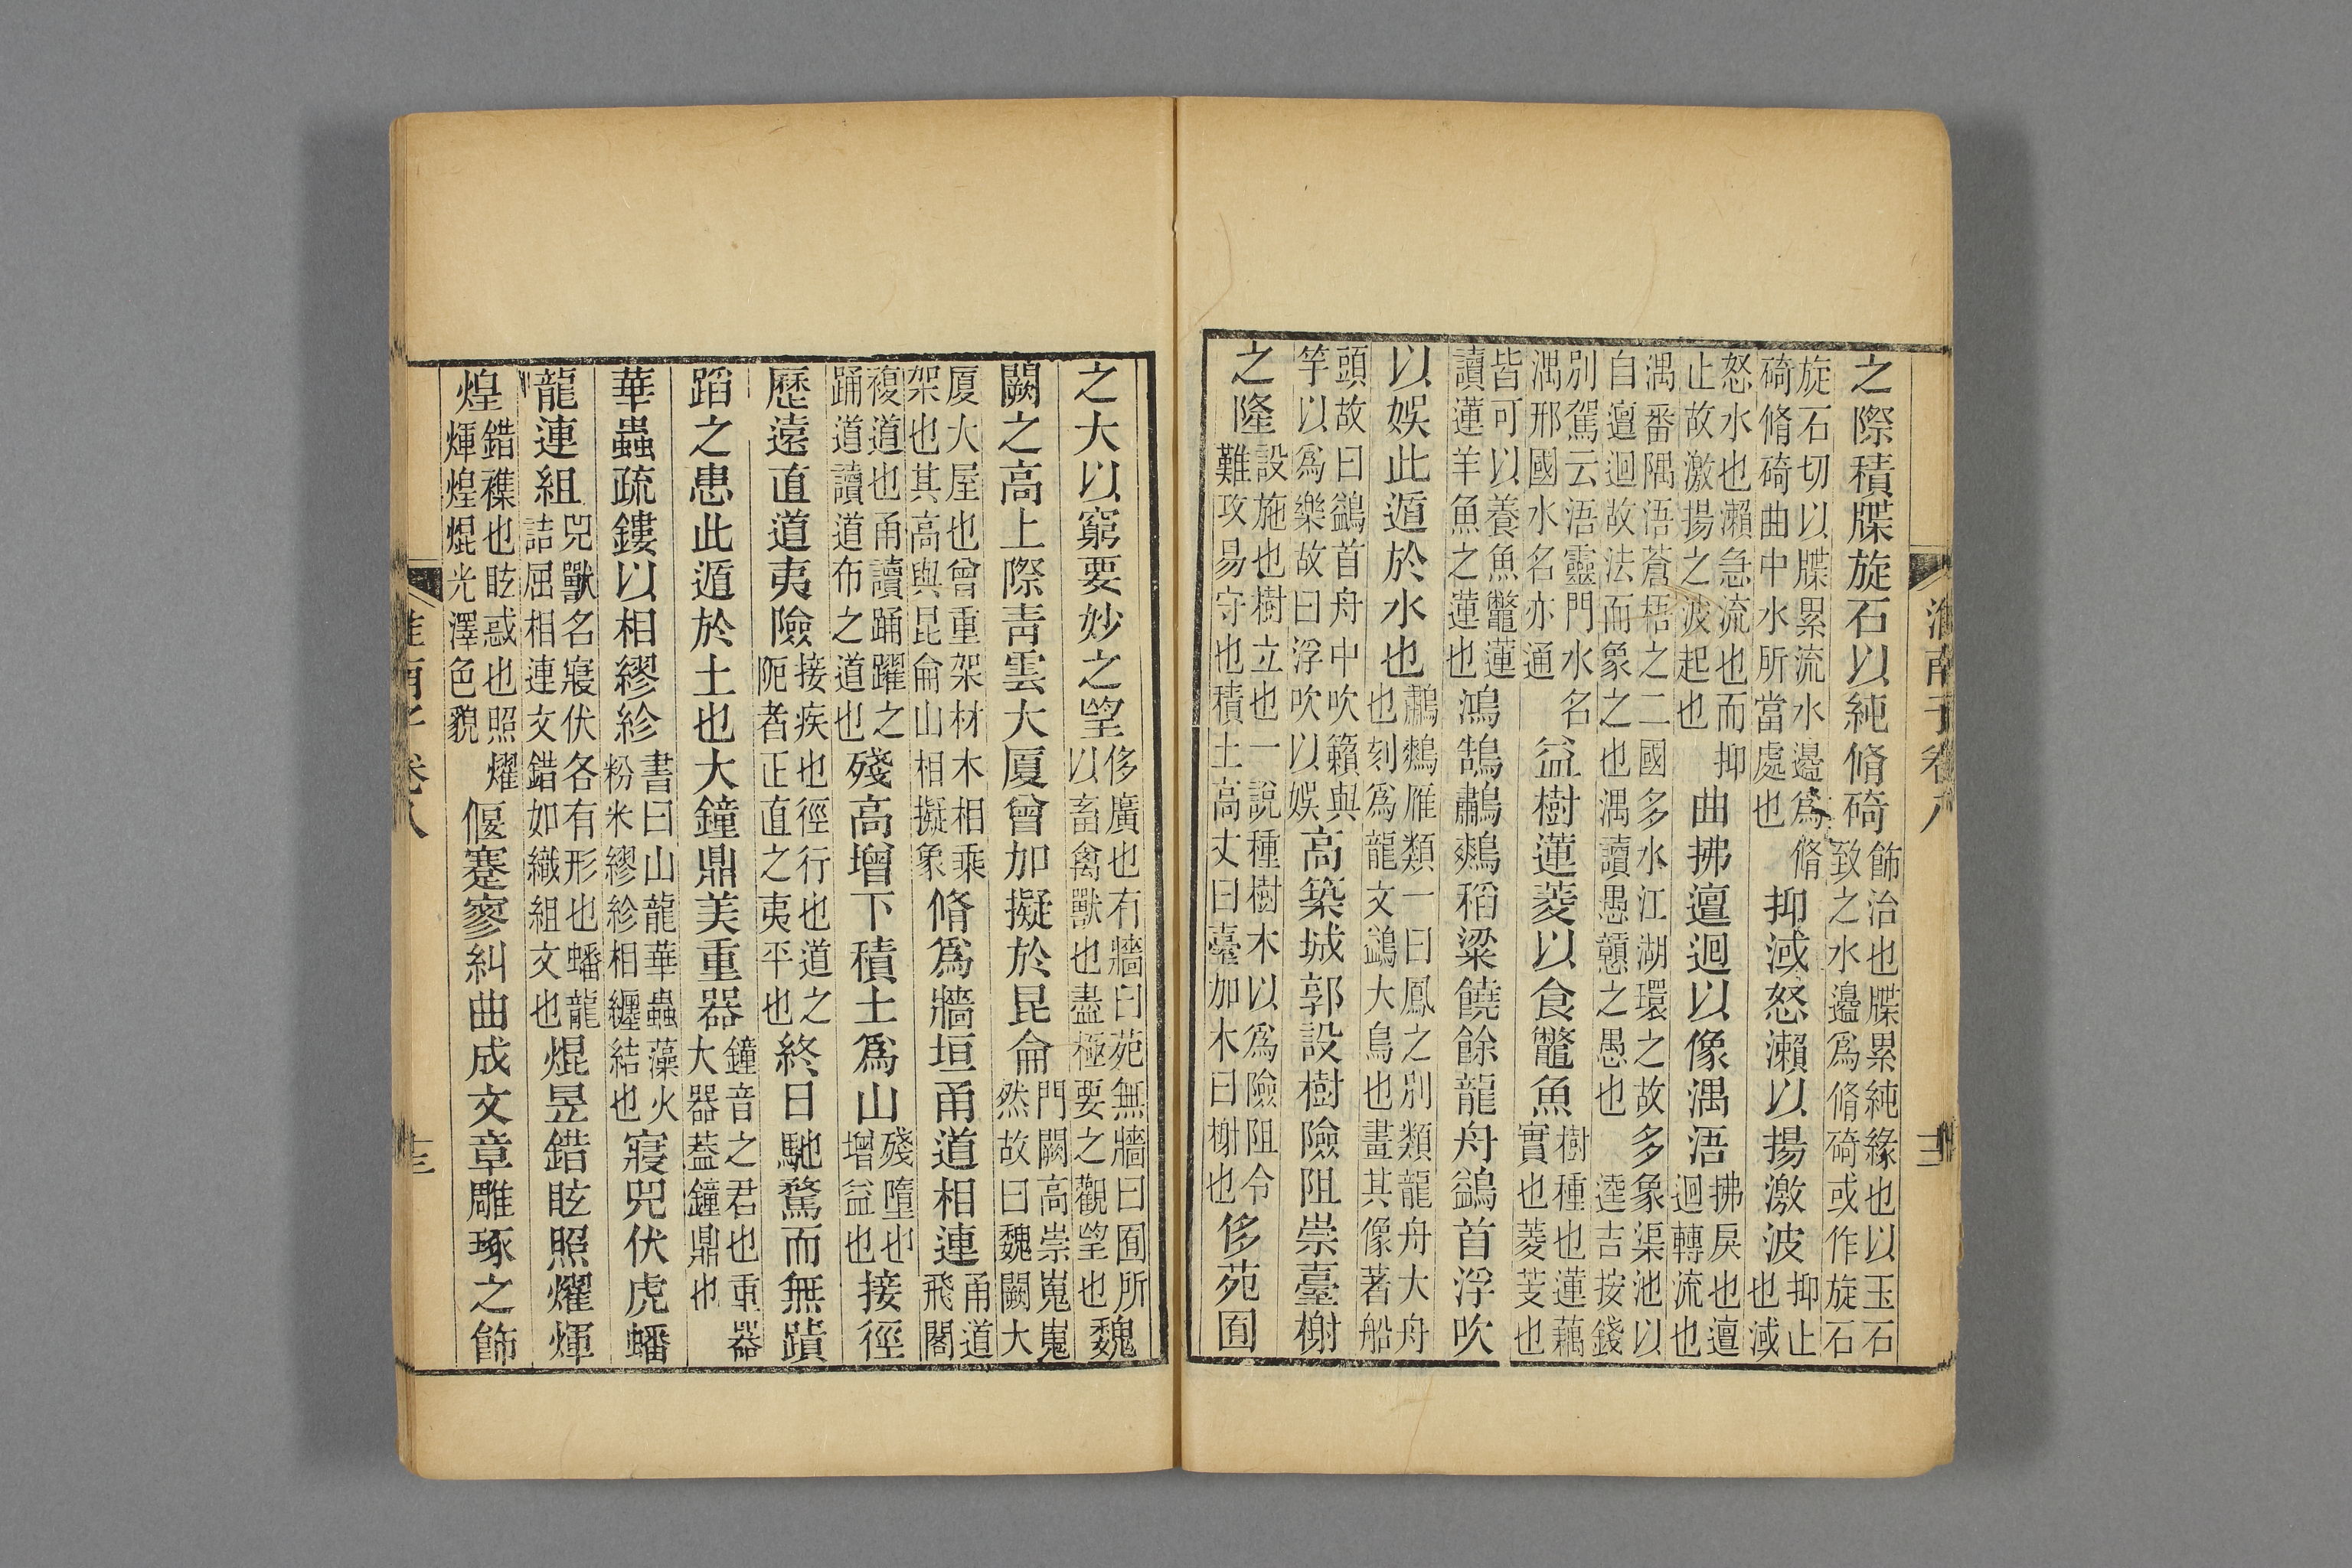 淮南子卷八
之際積牒旋石以純脩碕飾治也牒累純緣也以玉石致之水邊爲脩碕或作旋石
旋石切以牒累流水邊爲脩碕脩碕曲中水所當處也抑淢怒瀨以揚激波抑止也淢
怒水也瀨急流也而抑止故激揚之波起也曲拂邅迴以像渪浯拂戾也邅迴轉流也
渪番隅浯蒼梧之二國多水江湖環之故多象渠池以自邅迴故法而象之也渪讀愚戇之愚也逵吉按錢
別駕云浯靈門水名渪邪國水名亦通益樹蓮菱以食鼈魚樹種也蓮藕實也菱芰也
皆可以養魚鼈蓮讀蓮羊魚之蓮也鴻鵠鷫鷞稻粱饒餘龍舟鷁首浮吹
以娛此遁於水也鷫鷞雁類一曰鳳之別類龍舟大舟也刻爲龍文鷁大鳥也畫其像著船
頭故曰鷁首舟中吹籟與竽以爲樂故曰浮吹以娛高築城郭設樹險阻崇臺榭
之隆設施也樹立也一說種樹木以爲險阻令難攻易守也積土高丈曰臺加木曰榭也侈苑囿
之大以窮要妙之望侈廣也有牆曰苑無牆曰囿所以畜禽獸也盡極要之觀望也魏
闕之高上際靑雲大厦曾加擬於昆侖門闕高崇嵬嵬然故曰魏闕大
厦大屋也曾重架材木相乘架也其高與昆侖山相擬象脩爲牆垣甬道相連甬道飛閣
複道也甬讀踊躍之踊道讀道布之道也殘高增下積土爲山殘墮也增益也接徑
歷遠直道夷險接疾也徑行也道之阨者正直之夷平也終日馳騖而無蹟
蹈之患此遁於土也大鐘鼎美重器鐘音之君也重器大器葢鐘鼎也
華蟲疏鏤以相繆紾書曰山龍華蟲藻火粉米繆紾相纏結也寢兕伏虎蟠
龍連組兕獸名寢伏各有形也蟠龍詰屈相連文錯如織組文也焜昱錯眩照燿煇
煌錯襍也眩惑也照燿煇煌焜光澤色貌偃蹇寥糾曲成文章雕琢之飾
淮南子卷八